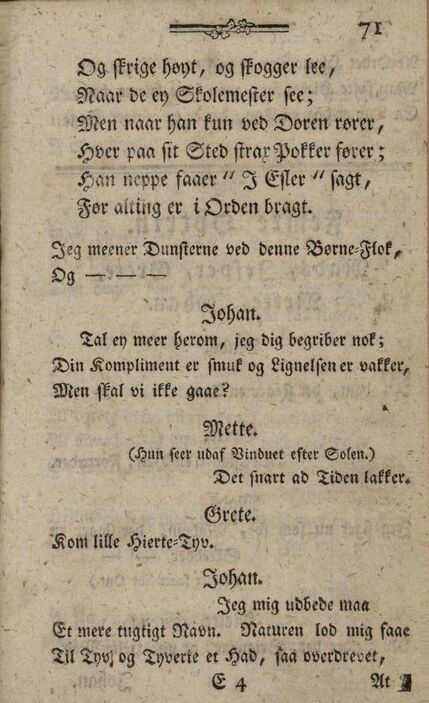 71
Og skrige høyt, og skogger lee,
Naar de ey Skolemester see;
Men naar han kun ved Døren rører,
Hver paa sit Sted strax Pokker fører;
Han neppe faaer “ I Esler “ sagt,
Før alting er i Orden bragt.
Jeg meener Dunsterne ved denne Børne-Flok,
Og — — —
Johan.
Tal ey meer herom, jeg dig begriber nok;
Din Kompliment er smuk og Lignelsen er vakker,
Men skal vi ikke gaae?
Mette.
(Hun seer udaf Vinduet efter Solen.)
Det snart ad Tiden lakker.
Grete.
Kom lille Hierte-Tyv.
Johan.
Jeg mig udbede maa
Et mere tugtigt Navn. Naturen lod mig faae
Til Tyv og Tyverie et Had, saa overdrevet,
E 4 At